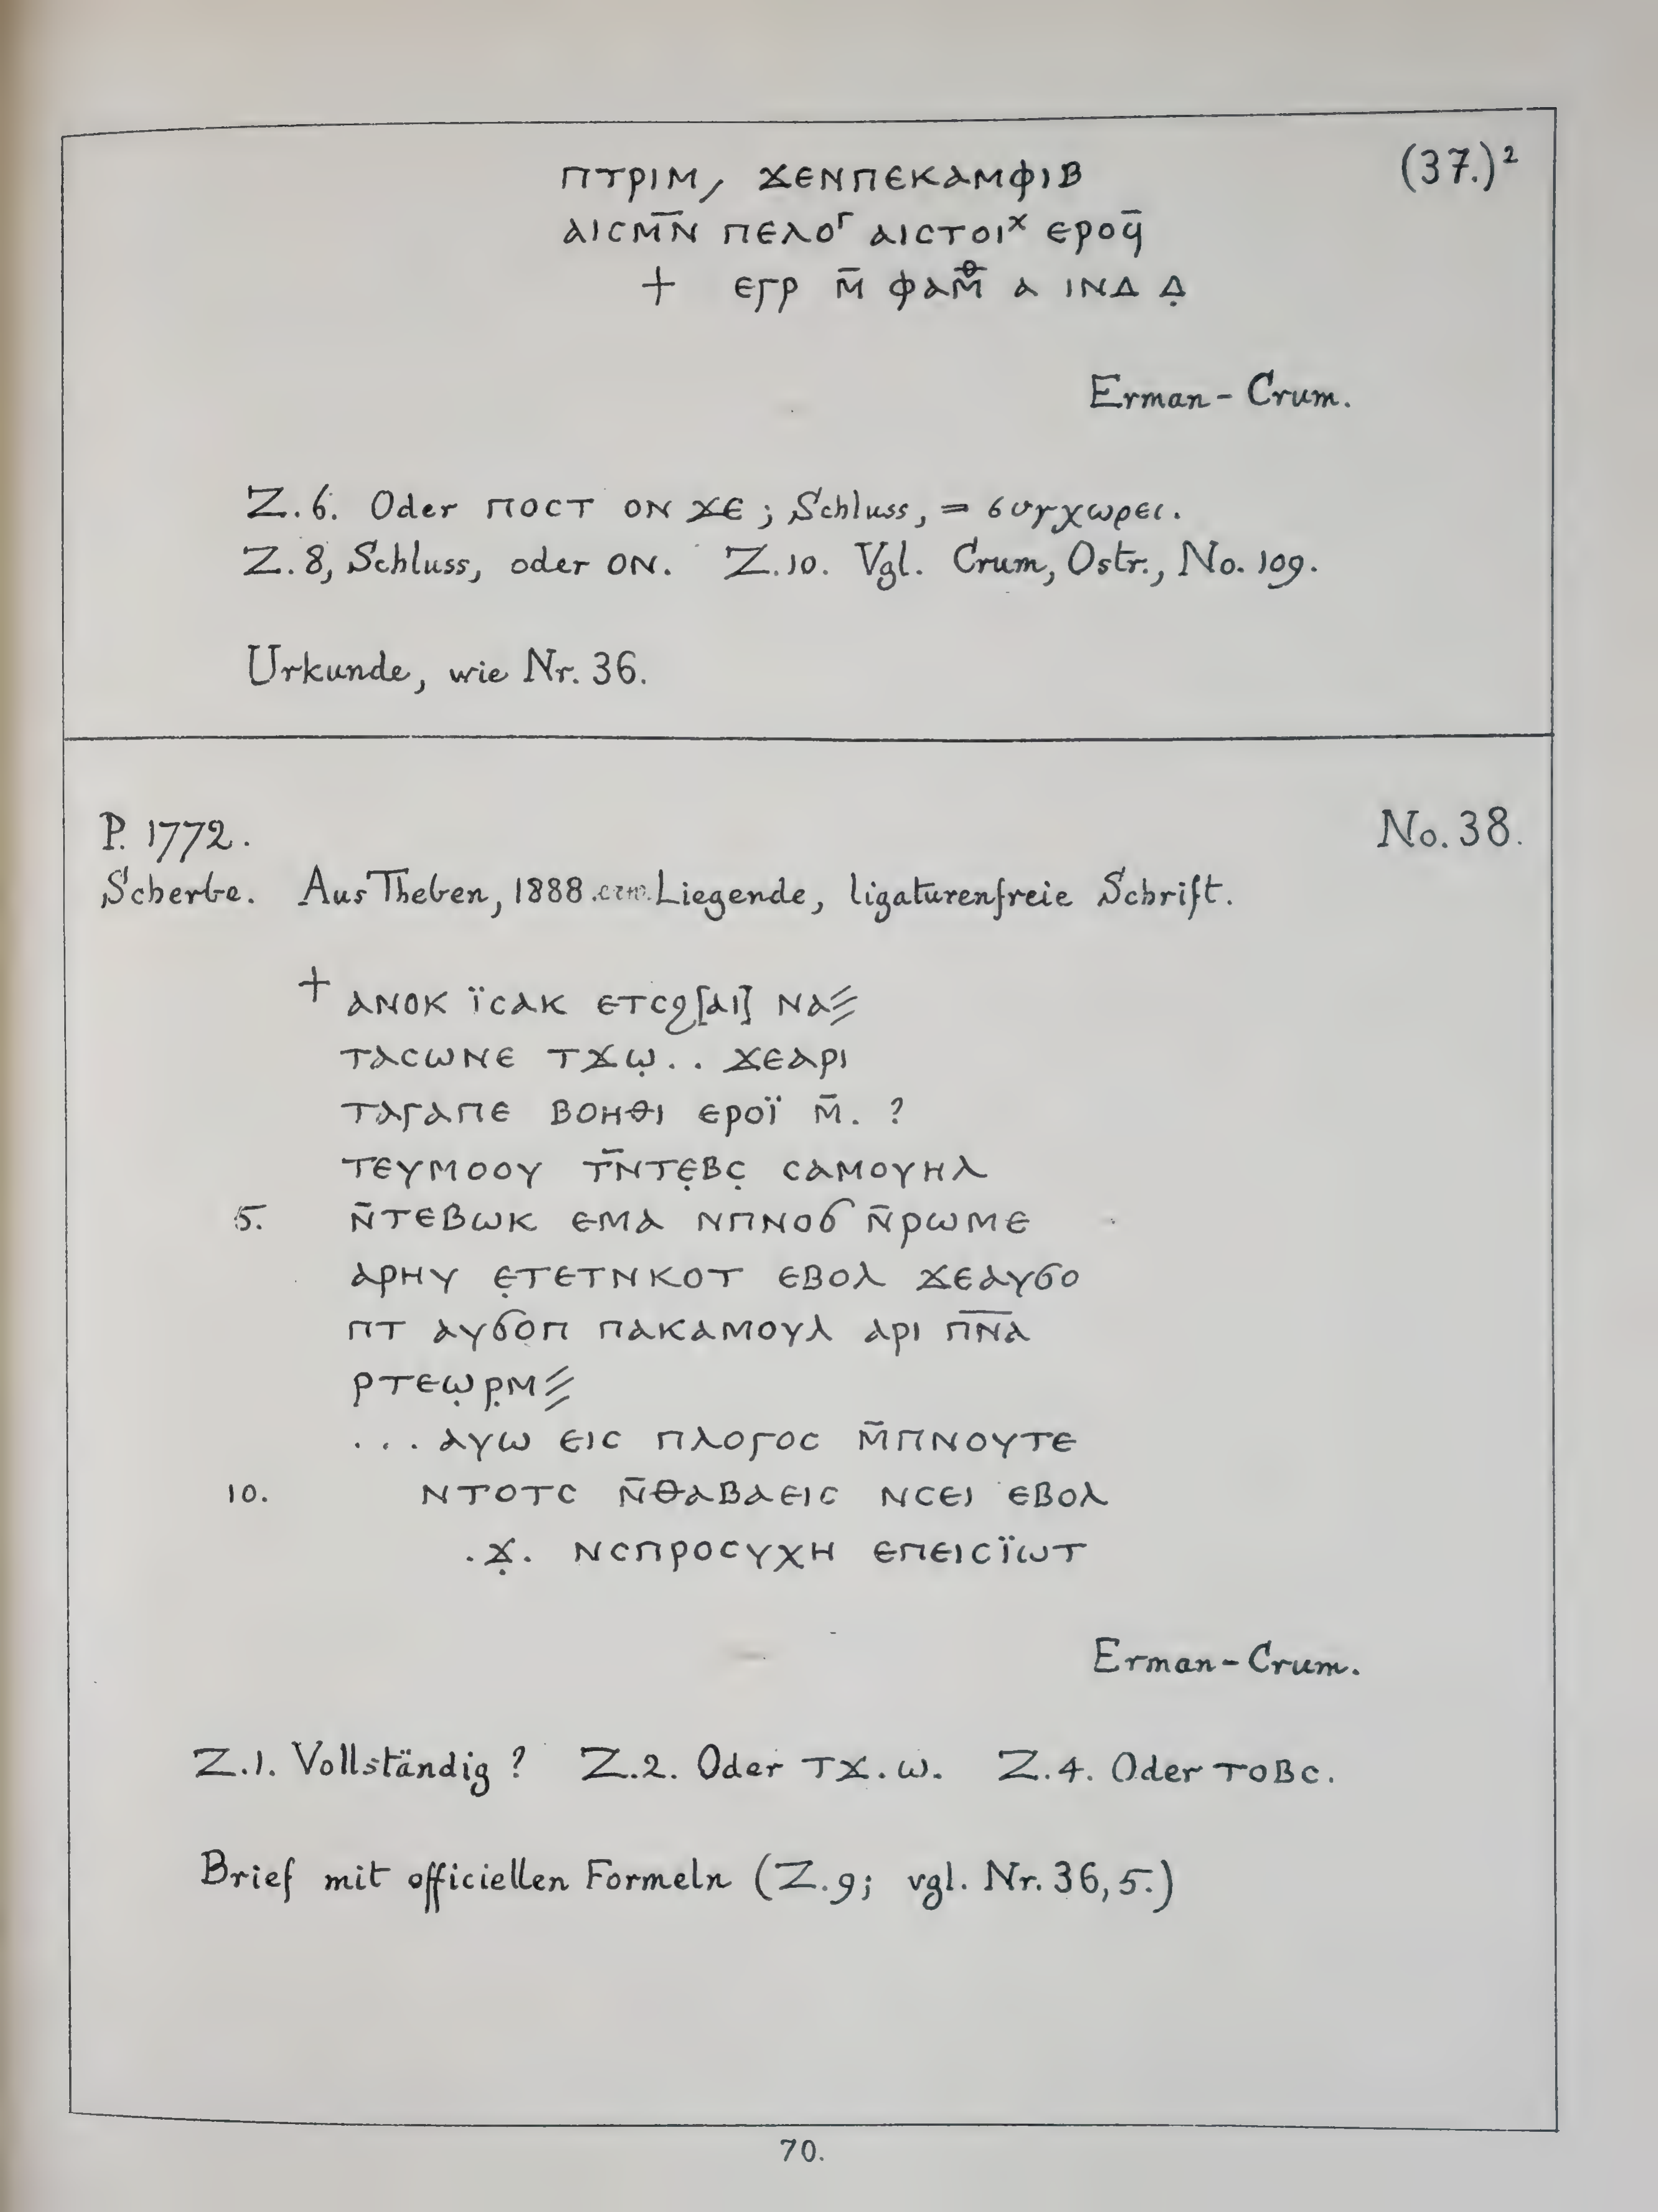 (37.)²
ⲡⲧⲣⲓⲙ, ϫⲉⲛⲡⲉⲕⲁⲙⲫⲓⲃ
ⲁⲓⲥⲙ̅ⲛ̅ ⲡⲉⲗⲟᴦ ⲁⲓⲥⲧⲟⲓˣ ⲉⲣⲟϥ̄
+ ⲉⲅⲣ ⲙ̄ ⲫⲁⲙ̄ⷽ ⲁ ⲓⲛⲇ ⲇ̣
Erman-Crum.
Z.6. Oder ⲡⲟⲥⲧ ⲟⲛ ϫⲉ; Schluss, = συγχωρει.
Z.8, Schluss, oder ⲟⲛ. Z.10. Vgl. Crum, Ostr., No. 109.
Urkunde, wie Nr. 36.
P. 1772. No. 38.
Scherbe. Aus Theben, 1888. Liegende, ligaturenfreie Schrift.
+ ⲁⲛⲟⲕ ⲓ̈ⲥⲁⲕ ⲉⲧⲥϩ[ⲁⲓ] ⲛⲁ⳽
ⲧⲁⲥⲱⲛⲉ ⲧϫⲱ̣.. ϫⲉⲁⲣⲓ
ⲧⲁⲅⲁⲡⲉ ⲃⲟⲏⲑⲓ ⲉⲣⲟⲓ̈ ⲙ̄. ?
ⲧⲉⲩⲙⲟⲟⲩ ⲧ̄ⲛ̄ⲧⲉ̣ⲃⲥ̣ ⲥⲁⲙⲟⲩⲏⲗ
5. ⲛ̄ⲧⲉⲃⲱⲕ ⲉⲙⲁ ⲛⲡⲛⲟϭ ⲛ̄ⲣⲱⲙⲉ
ⲁⲣⲏⲩ ⲉ̣ⲧⲉⲧⲛⲕⲟⲧ ⲉⲃⲟⲗ ϫⲉⲁⲩϭⲟ
ⲡⲧ ⲁⲩϭⲟⲡ ⲡⲁⲕⲁⲙⲟⲩⲗ ⲁⲣⲓ ⲡ̅ⲛ̅ⲁ
ⲣⲧⲉⲱ̣ⲣ̣ⲙ⳽
... ⲁⲩⲱ ⲉⲓⲥ ⲡⲗⲟⲅⲟⲥ ⲙ̄ⲡⲛⲟⲩⲧⲉ
10. ⲛⲧⲟⲧⲥ ⲛ̄ⲑⲁⲃⲁⲉⲓⲥ ⲛⲥⲉⲓ ⲉⲃⲟⲗ
.ϫ̣. ⲛⲥⲡⲣⲟⲥⲩⲭⲏ ⲉⲡⲉⲓⲥⲓ̈ⲱⲧ
Erman-Crum.
Z.1. Vollständig? Z.2. Oder ⲧϫ.ⲱ. Z.4. Oder ⲧⲟⲃⲥ.
Brief mit officiellen Formeln (Z.9; vgl. Nr. 36,5.)
70.